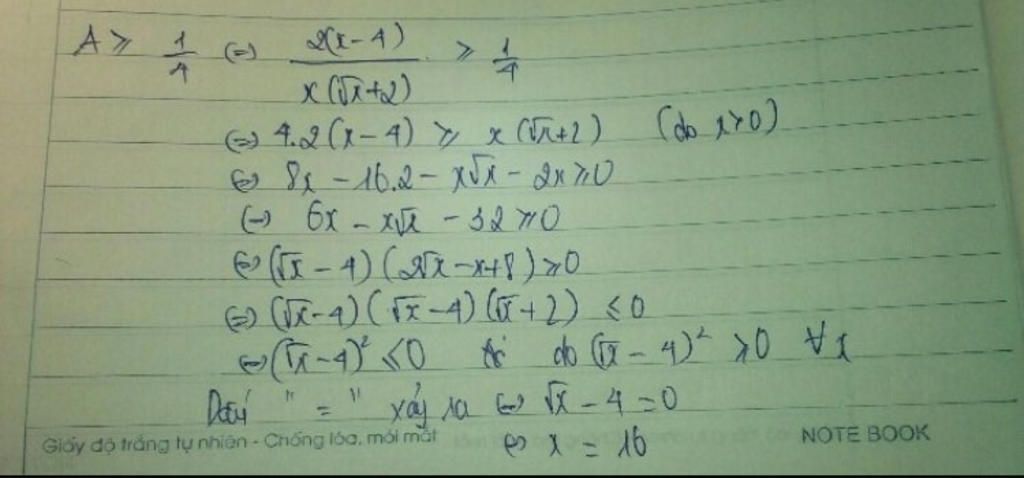 A ≥ 1/4 (=) 2(x-4)/x(√x+2) ≥ 1/4
(=) 4.2(x-4) ≥ x(√x+2) (do x>0)
(=) 8x - 16.2 - x√x - 2x ≥ 0
(=) 6x - x√x - 32 ≥ 0
(=) (√x - 4)(2√x - x+8) ≥ 0
(=) (√x-4)(√x-4)(√x+2) ≤ 0
(=) (√x-4)² ≤ 0 do (√x - 4)² ≥ 0 ∀x
Dấu " = " xảy ra (=) √x - 4 = 0
(=) x = 16
Giấy độ trắng tự nhiên - Chống lóa, mỏi mắt NOTE BOOK